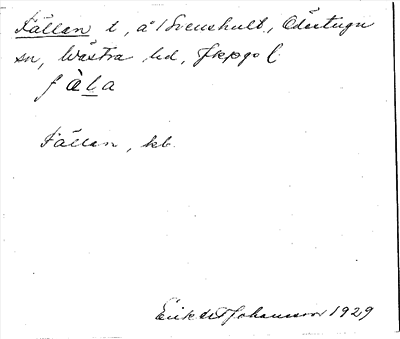 Fällan t, å Svenshult, Öðestugu
sn, Västra hd, Jkpgs l
fàla
Fällan, kb.
Erik Johansson 1929